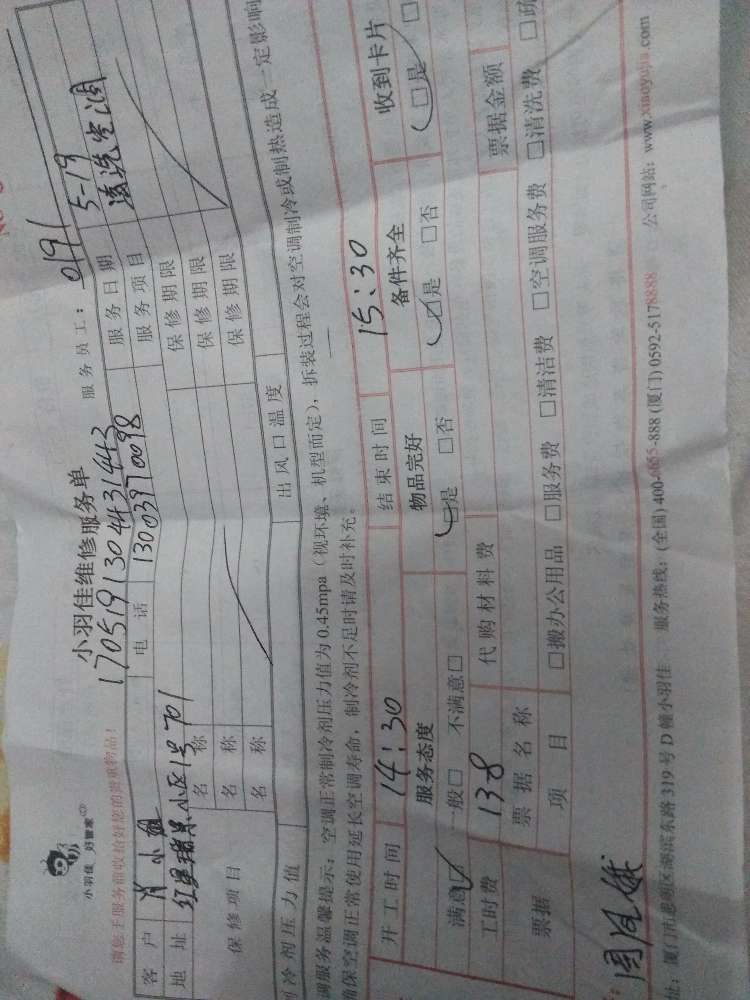 小羽佳 好管家
小羽佳维修服务单
170519130443144
请您于服务前收拾好您的贵重物品!
服务员工: 0191
客户 肖小姐 电话 13003970098 服务日期 5-19
地址 小区1号701 服务项目 清洗空调
保修项目 名称 保修期限
名称 保修期限
名称 保修期限
冷剂压力值 出风口温度
调服务温馨提示:空调正常制冷剂压力值为 0.45mpa(视环境、机型而定),拆装过程会对空调制冷或制热造成一定影响
确保空调正常使用延长空调寿命,制冷剂不足时请及时补充。
开工时间 14:30 结束时间 15:30
服务态度 物品完好 备件齐全 收到卡片
满意☑ 一般□ 不满意□ ☑是 □否 ☑是 □否 ☑是 □
工时费 138 代购材料费 票据金额
票据 票据名称 □搬办公用品 □服务费 □清洁费 □空调服务费 □清洗费 □疏
项目
址:厦门市思明区湖滨东路319号D幢小羽佳 服务热线:(全国)400-6655-888 (厦门)0592-5178888 公司网站:www.xiaoyujia.com